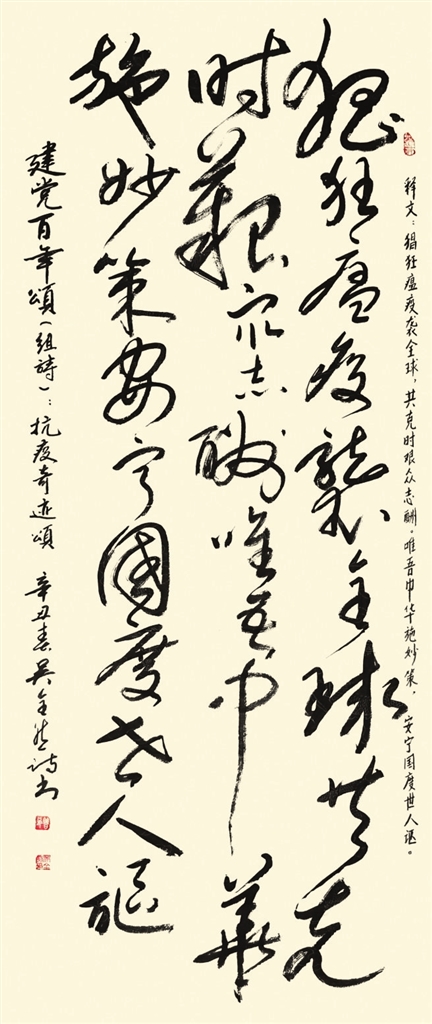 释文：猖狂瘟疫袭全球，共克时艰众志酬。唯吾中华施妙策，安宁国度世人讴。
猖狂瘟疫襲全球共克
时艱眾志酬唯吾中華
施妙策安宁國度世人謳
建党百年頌（组詩）：抗疫奇迹頌 辛丑春吴诗书